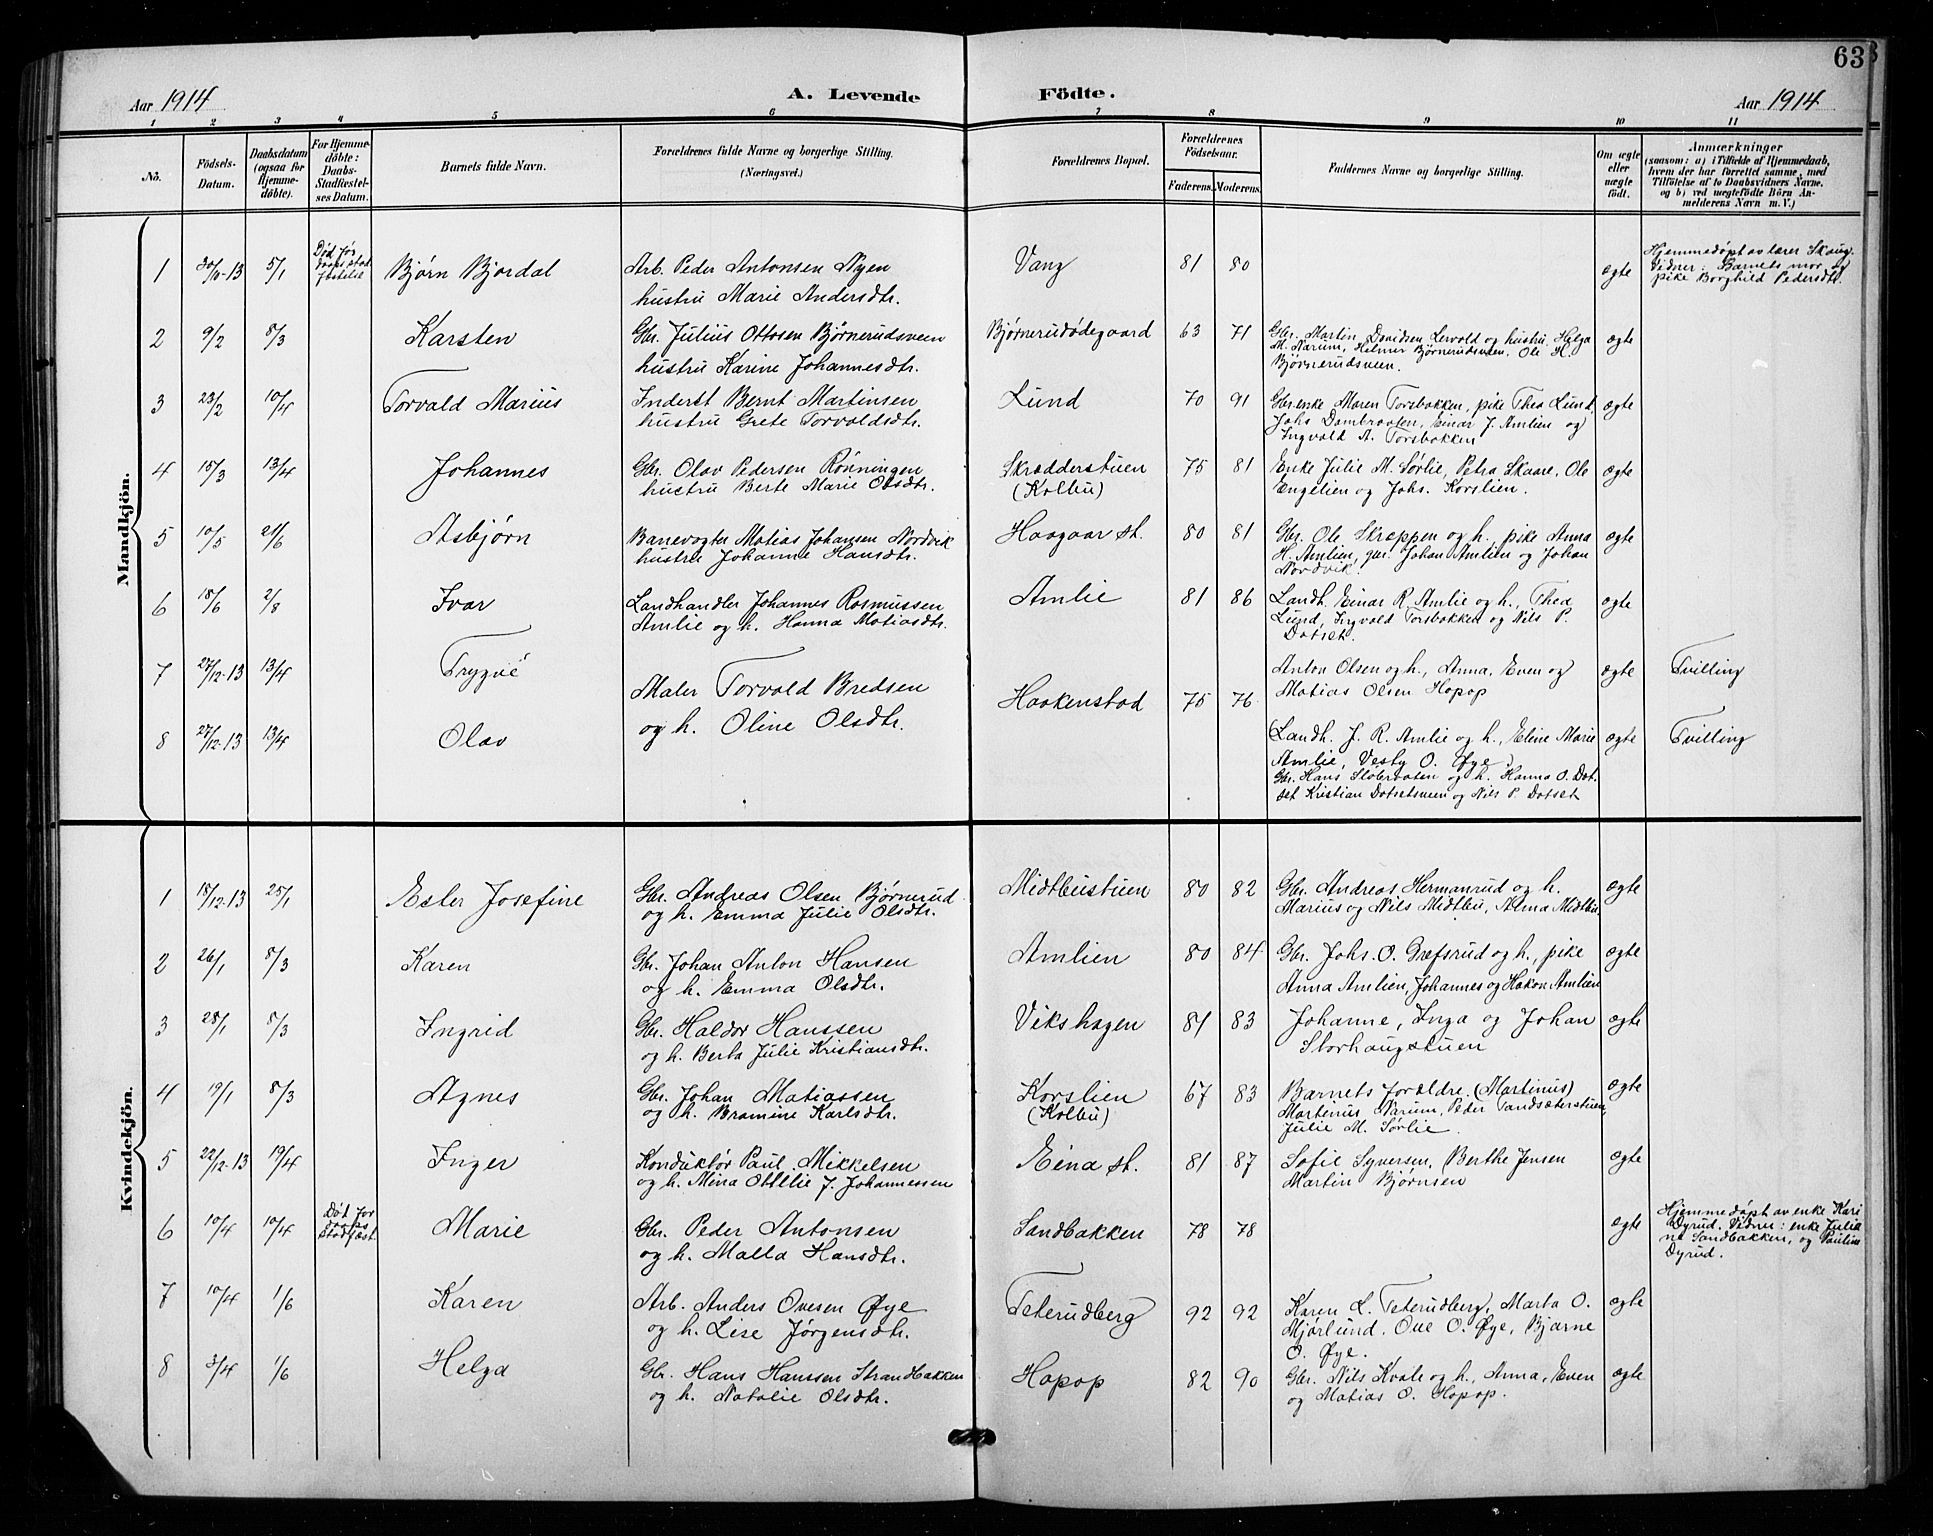 63
Aar 1914
A. Levende Födte.
Aar 1914
1 2 3 4 5 6 7 8 9 10 11
No.
Födsels-
Datum.
Daabsdatum
(ogsaa for
Hjemme-
döbte).
For Hjemme-
döbte:
Daabs-
Stadfæstel-
ses Datum.
Barnets fulde Navn.
Forældrenes fulde Navne og borgerlige Stilling.
(Næringsvei.)
Forældrenes Bopæl.
Forældrenes
Födselsaar.
Faderens. Moderens.
Faddernes Navne og borgerlige Stilling.
Om ægte
eller
uægte
födt.
Anmærkninger
(saasom: a) i Tilfælde af Hjemmedaab,
hvem der har forrettet samme, med
Tilföielse af to Daabsvidners Navne,
og b) ved uægtefödte Börn An-
melderens Navn m. V.)
Mandkjön.
1 5/1 Død før Bjørn Bjordal Arb. Peder Antonsen Nyen Vang 81 80 ægte Hjemmedøpt av lærer Skaug.
hustru Marie Andersdtr. Vidner: Barnets mor og
pike Borghild Pedersdtr.
2 9/2 8/3 Karsten Gbr. Julius Ottosen Bjørnerudsveen Bjørnerudødegaard 63 71 Gbr. Martin Davidsen Lervold og hustru, Helga ægte
hustru Karine Johannesdtr. M. Narum, Helmer Bjørnerudsveen, Ole H.
Bjørnerudsveen.
3 23/2 10/4 Torvald Marius Inderst Bernt Martinsen Lund 70 91 Gbr.enke Maren Torsbakken, pike Thea Lund, ægte
hustru Grete Torvaldsdtr. Johs Dambraaten, Einar J. Amlien og
Ingvald A. Torsbakken
4 15/3 13/4 Johannes Gbr. Olav Pedersen Rönningen Skrædderstuen 75 81 Enke Julie M. Sørlie, Petra Skaare, Ole ægte
hustru Berte Marie Olsdtr. (Kolbu) Engelien og Johs. Korslien.
5 10/5 21/6 Asbjørn Banevogter Matias Johansen Nordvik Haagaar st. 80 81 Gbr. Ole Skreppen og h, pike Anna ægte
hustru Johanne Hansdtr. H. Amlien, Johan Amlien og Johan
Nordvik.
6 18/6 2/8 Ivar Landhandler Johannes Rasmussen Amlie 81 86 Landh. Einar R. Amlie og h., Thea ægte
Amlie og h. Hanna Matiasdtr. Lund, Ingvald Torsbakken og Nils P.
Dotset.
7 27/12-13 13/4 Trygve Anton Olsen og h., Anna, Even og ægte Tvilling
Maler Torvald Bredsen Haakenstad 75 76 Matias Olsen Hopop
og h. Oline Olsdtr.
8 27/12-13 13/4 Olav Landh. J. R. Amlie og h., Eline Marie ægte Tvilling
Amlie, Vesty O. Øye,
Gbr. Hans Slöbraaten og h. Hanna O. Dot-
set Kristian Dotsetsveen og Nils P. Dotset
Kvindekjön.
1 18/12-13 25/1 Ester Josefine Gbr. Andreas Olsen Bjørnerud Midtbustuen 80 82 Gbr. Andreas Hermanrud og h. ægte
og h. Emma Julie Olsdtr. Marius og Nils Midtbu, Alma Midtbu
2 26/1 8/3 Karen Gbr. Johan Anton Hansen Amlien 80 84 Gbr. Johs. O. Grefsrud og h., pike ægte
og h. Emma Olsdtr. Anna Amlien, Johannes og Hakon Amlien
3 28/1 8/3 Ingrid Gbr. Haldor Hanssen Vikshagen 81 83 Johanne, Inga og Johan ægte
og h. Berta Julie Kristiansdtr. Storhaugstuen
4 19/1 8/3 Agnes Gbr. Johan Matiassen Korslien 67 83 Barnets forældre (Martinus) ægte
og h. Bramine Karlsdtr. (Kolbu) Martinus Narum, Peder Sandsæterstuen,
Julie M. Sørlie.
5 22/12-13 19/4 Inger Konduktør Paul Mikkelsen Eina st. 81 87 Sofie Syversen, Berthe Jensen ægte
og h. Mina Ottilie J. Johannessen Martin Bjørnsen
6 10/4 10/4 Død før daabs stadfæst. Marie Gbr. Peder Antonsen Sandbakken 78 78 ægte Hjemmedøpt av enke Kari
og h. Malla Hansdtr. Dyrud. Vidner: enke Julia
ne Sandbakken, og Pauline
Dyrud.
7 10/4 1/6 Karen Arb. Anders Ovesen Øye Teterudberg 92 92 Karen L. Teterudberg, Marta O. ægte
og h. Lise Jørgensdtr. Mjørlund, Ove O. Øye, Bjarne
O. Øye.
8 3/4 1/6 Helga Gbr. Hans Hanssen Strandbakken Hopop 82 90 Gbr. Nils Kvale og h., Anna, Even ægte
og h. Natalie Olsdtr. og Matias O. Hopop.